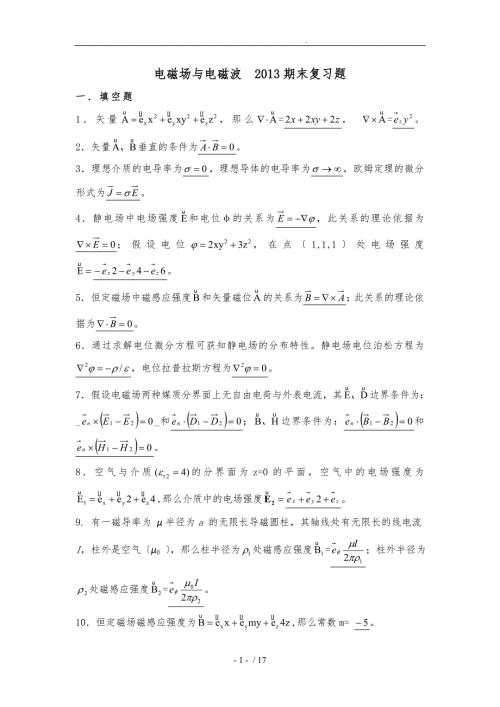 电磁场与电磁波 2013期末复习题
一．填空题
1．矢量 A⃗=e⃗ₓx²+e⃗ᵧxy²+e⃗_z z²，那么 ∇·A⃗=2x+2xy+2z， ∇×A⃗=e⃗_z y²。
2．矢量A⃗、B⃗垂直的条件为 A⃗·B⃗=0。
3．理想介质的电导率为 σ=0，理想导体的电导率为 σ→∞，欧姆定理的微分
形式为 J⃗=σE⃗。
4．静电场中电场强度E⃗和电位φ的关系为 E⃗=−∇φ，此关系的理论依据为
∇×E⃗=0；假设电位 φ=2xy²+3z²，在点〔1,1,1〕处电场强度
E⃗=−e⃗ₓ2−e⃗ᵧ4−e⃗_z6。
5．恒定磁场中磁感应强度B⃗和矢量磁位A⃗的关系为 B⃗=∇×A⃗；此关系的理论依
据为 ∇·B⃗=0。
6．通过求解电位微分方程可获知静电场的分布特性。静电场电位泊松方程为
∇²φ=−ρ/ε，电位拉普拉斯方程为 ∇²φ=0。
7．假设电磁场两种媒质分界面上无自由电荷与外表电流，其E⃗、D⃗边界条件为：
_e⃗ₙ×(E⃗₁−E⃗₂)=0_和 e⃗ₙ·(D⃗₁−D⃗₂)=0；B⃗、H⃗边界条件为：e⃗ₙ·(B⃗₁−B⃗₂)=0和
e⃗ₙ×(H⃗₁−H⃗₂)=0。
8．空气与介质(ε_r2=4)的分界面为z=0的平面，空气中的电场强度为
E⃗₁=e⃗ₓ+e⃗ᵧ2+e⃗_z4,那么介质中的电场强度E₂=e⃗ₓ+e⃗ᵧ2+e⃗_z。
9. 有一磁导率为 μ 半径为a 的无限长导磁圆柱，其轴线处有无限长的线电流
I，柱外是空气〔μ₀ 〕，那么柱半径为ρ₁处磁感应强度B⃗₁=e⃗_φ μI/2πρ₁；柱外半径为
ρ₂处磁感应强度B⃗₂=e⃗_φ μ₀I/2πρ₂。
10．恒定磁场磁感应强度为B⃗=e⃗ₓx+e⃗ᵧmy+e⃗_z4z,那么常数m= −5。
- 1 - / 17